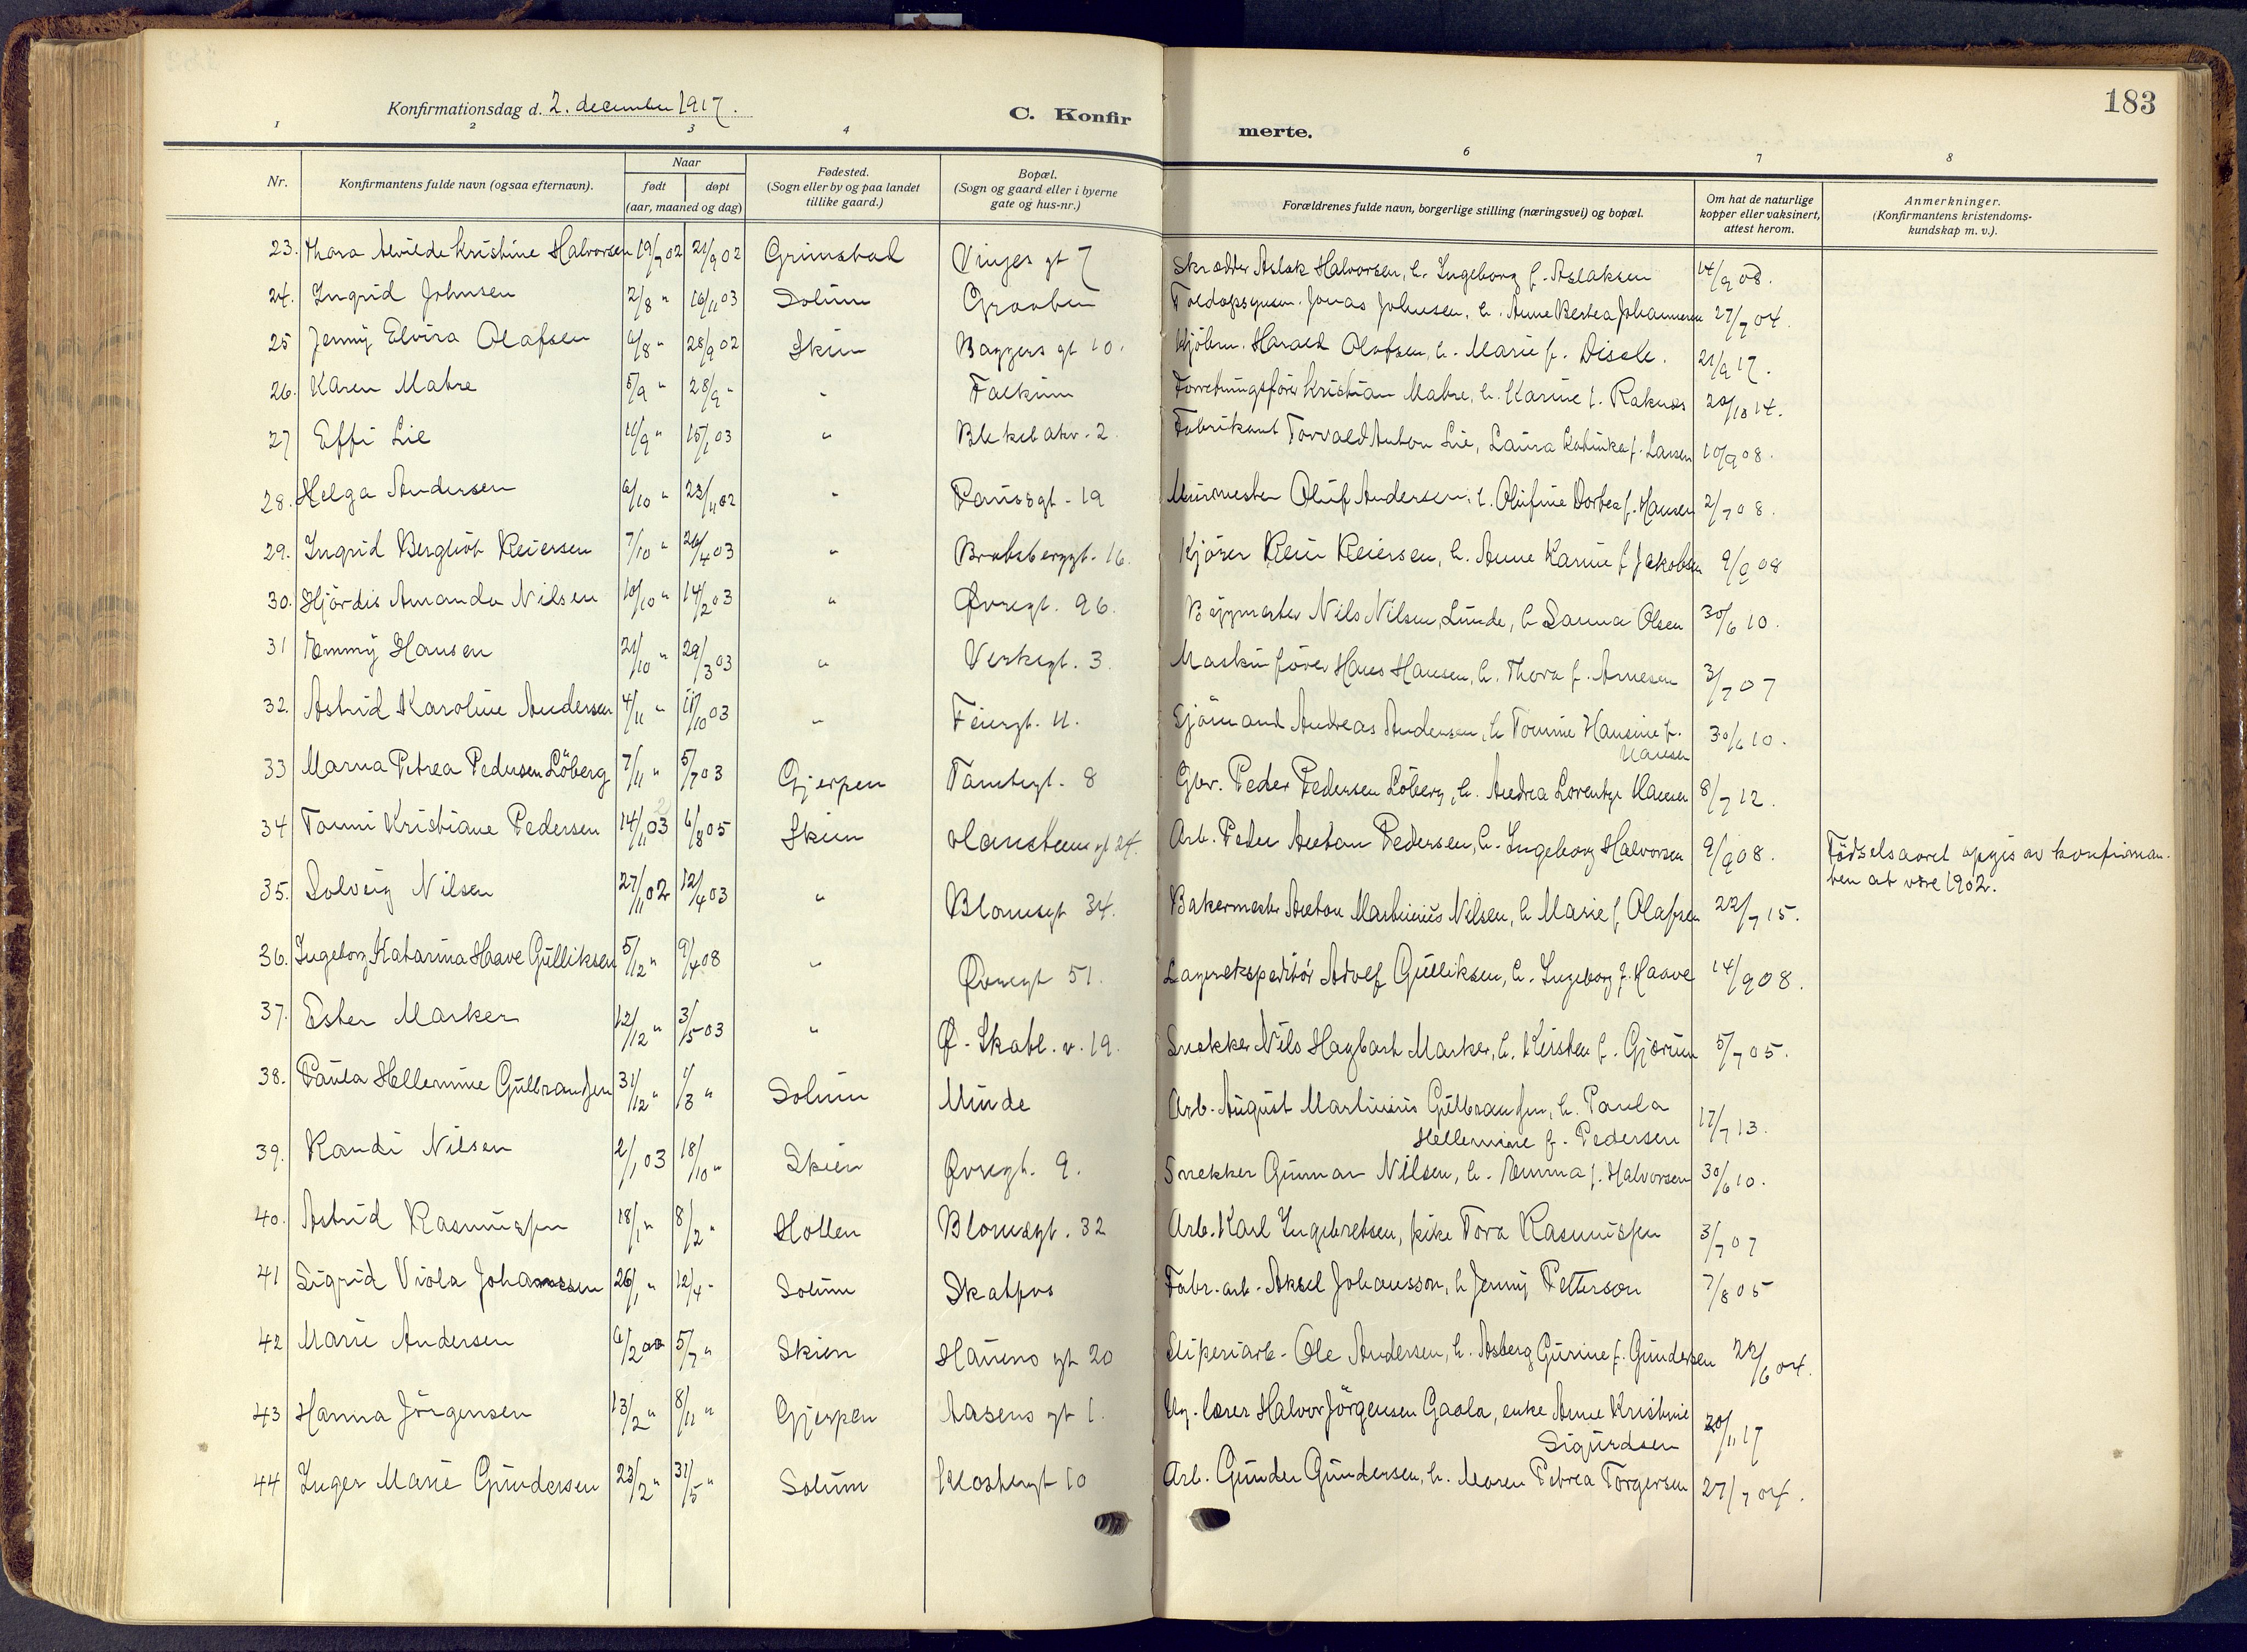 183
Konfirmationsdag d. 2. december 1917.
C. Konfir
merte.
1 2 3 4 6 7 8
Nr. Konfirmantens fulde navn (ogsaa efternavn). Naar født døpt (aar, maaned og dag) Fødested. (Sogn eller by og paa landet tillike gaard.) Bopæl. (Sogn og gaard eller i byerne gate og hus-nr.) Forældrenes fulde navn, borgerlige stilling (næringsvei) og bopæl. Om hat de naturlige kopper eller vaksinert, attest herom. Anmerkninger. (Konfirmantens kristendoms-kundskap m. v.).
23. Thora Alvilde Kristine Halvorsen 19/7 02 21/9 02 Grimstad Vinjes gt 7 Skrædder Aslak Halvorsen, h. Ingeborg f. Aslaksen 14/9 08.
24. Ingrid Johnsen 2/8 " 16/11 03 Solum Graaben Toldopsynsm. Jonas Johnsen, h. Anne Bertea Johannesen 27/7 04.
25 Jenny Elvira Olafsen 6/8 " 28/9 02 Skien Baggers gt 10. Kjøbm. Harald Olafsen, h. Marie f. Disele. 21/9 17.
26. Karen Mahre 5/9 " 28/9 " " Falkum Forretningsfører Kristian Mahre, h. Karine f. Raknes 20/10 14.
27 Effi Lie 11/9 " 15/1 03 " Blekebakv. 2. Fabrikant Torvald Anton Lie, Laura Kathinka f. Larsen 10/9 08.
28. Helga Andersen 6/10 " 23/11 02 " Paussgt - 19 Murmester Oluf Andersen, h. Olufine Dorthea f. Hansen 2/7 08.
29. Ingrid Bergliot Reiersen 7/10 " 26/4 03 " Bratsberggt. 16. Kjører Reier Reiersen, h. Anne Karine f. Jakobsen 9/9 08
30. Hjördis Amanda Nilsen 10/10 " 14/2 03 " Øvregt. 96. Byggmester Nils Nilsen, Lunde, h Sanna Olsen 30/6 10.
31 Emmy Hansen 21/10 " 29/3 03 " Verksgt. 3. Maskinfører Hans Hansen, h. Thora f. Arnesen 3/7 07
32. Astrid Karoline Andersen 4/11 " 11/10 03 " Feiergt. 11. Sjömand Andreas Andersen, h Tomine Hansine f. Hansen 30/6 10.
33 Marna Petrea Pedersen Löberg 7/11 " 5/7 03 Gjerpen Tamtegt. 8 Gbr. Peder Pedersen Löberg, h. Andrea Lorentze Hansen 8/7 12.
34 Tonni Kristiane Pedersen 14/11 03 2 6/8 05 Skien Hansteens gt 24. Arb. Peder Anton Pedersen, h. Ingeborg Halvorsen 9/9 08. Födselsaaret opgis av konfirman-
ten at være 1902.
35. Solveig Nilsen 27/11 02 12/4 03 " Blomsgt 34. Bakermester Anton Martinius Nilsen, h Marie f Olafsen 22/7 15.
36. Ingeborg Katarina Haave Gulliksen 5/12 " 9/4 08 " Øvregt 51. Lagerekspeditör Adolf Gulliksen, h. Ingeborg f. Haave 14/9 08.
37. Ester Marker 12/12 " 3/5 03 " Ø. Skotl. v. 19. Snekker Nils Hagbart Marker, h. Kirsten f. Gjærum 5/7 05.
38. Paula Hellemine Gulbrandsen 31/12 " 1/3 " Solum Munde Arb. August Martinius Gulbrandsen, h. Paula
Hellemine f. Pedersen 17/7 13.
39. Randi Nilsen 2/1 03 18/10 " Skien Øvregt. 9. Snekker Gunnar Nilsen, h. Emma f. Halvorsen 30/6 10.
40. Astrid Rasmussen 18/1 " 8/2 " Hollen Blomsgt. 32 Arb. Karl Ingebretsen, pike Tora Rasmussen 3/7 07
41 Sigrid Viola Johanssen 26/1 " 12/4 " Solum Skatfos Fabr. arb. Aksel Johansson, h Jenny Petterson 7/8 05
42 Marie Andersen 6/2 5/7 " Skien Hauens gt 20 Sliperiarb. Ole Andersen, h. Asberg Gurine f. Gundersen 22/6 04.
43 Hanna Jörgensen 13/2 " 8/11 " Gjerpen Aasens gt 1. Ug. lærer Halvor Jörgensen Gaala, enke Anne Kristine
Sigurdsen 20/11 17
44 Inger Marie Gundersen 23/2 " 31/5 " Solum Klostergt 10 Arb. Gunder Gundersen, h. Maren Petrea Torgersen 27/7 04.